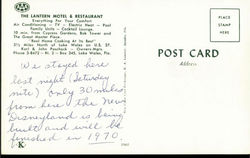 THE LANTERN MOTEL & RESTAURANT
Everything For Your Comfort
Air Conditioning — TV — Electric Heat — Pool
Family Units — Cocktail Lounge
10 min. from Cypress Gardens, Bok Tower and
The Great Masterpiece
"Real Home Cooking At Its Best"
2½ Miles North of Lake Wales on U.S. 27
Karl & John Paschack — Owners-Mgrs
Phone 3-8672 - Rt. 2 - Box 245, Lake Wales, Fla.
POST CARD
Address
We stayed here
last night (Saturday
nite) only 30 miles
from here the New
Disneyland is being
built and will be
finished in 1970.
K